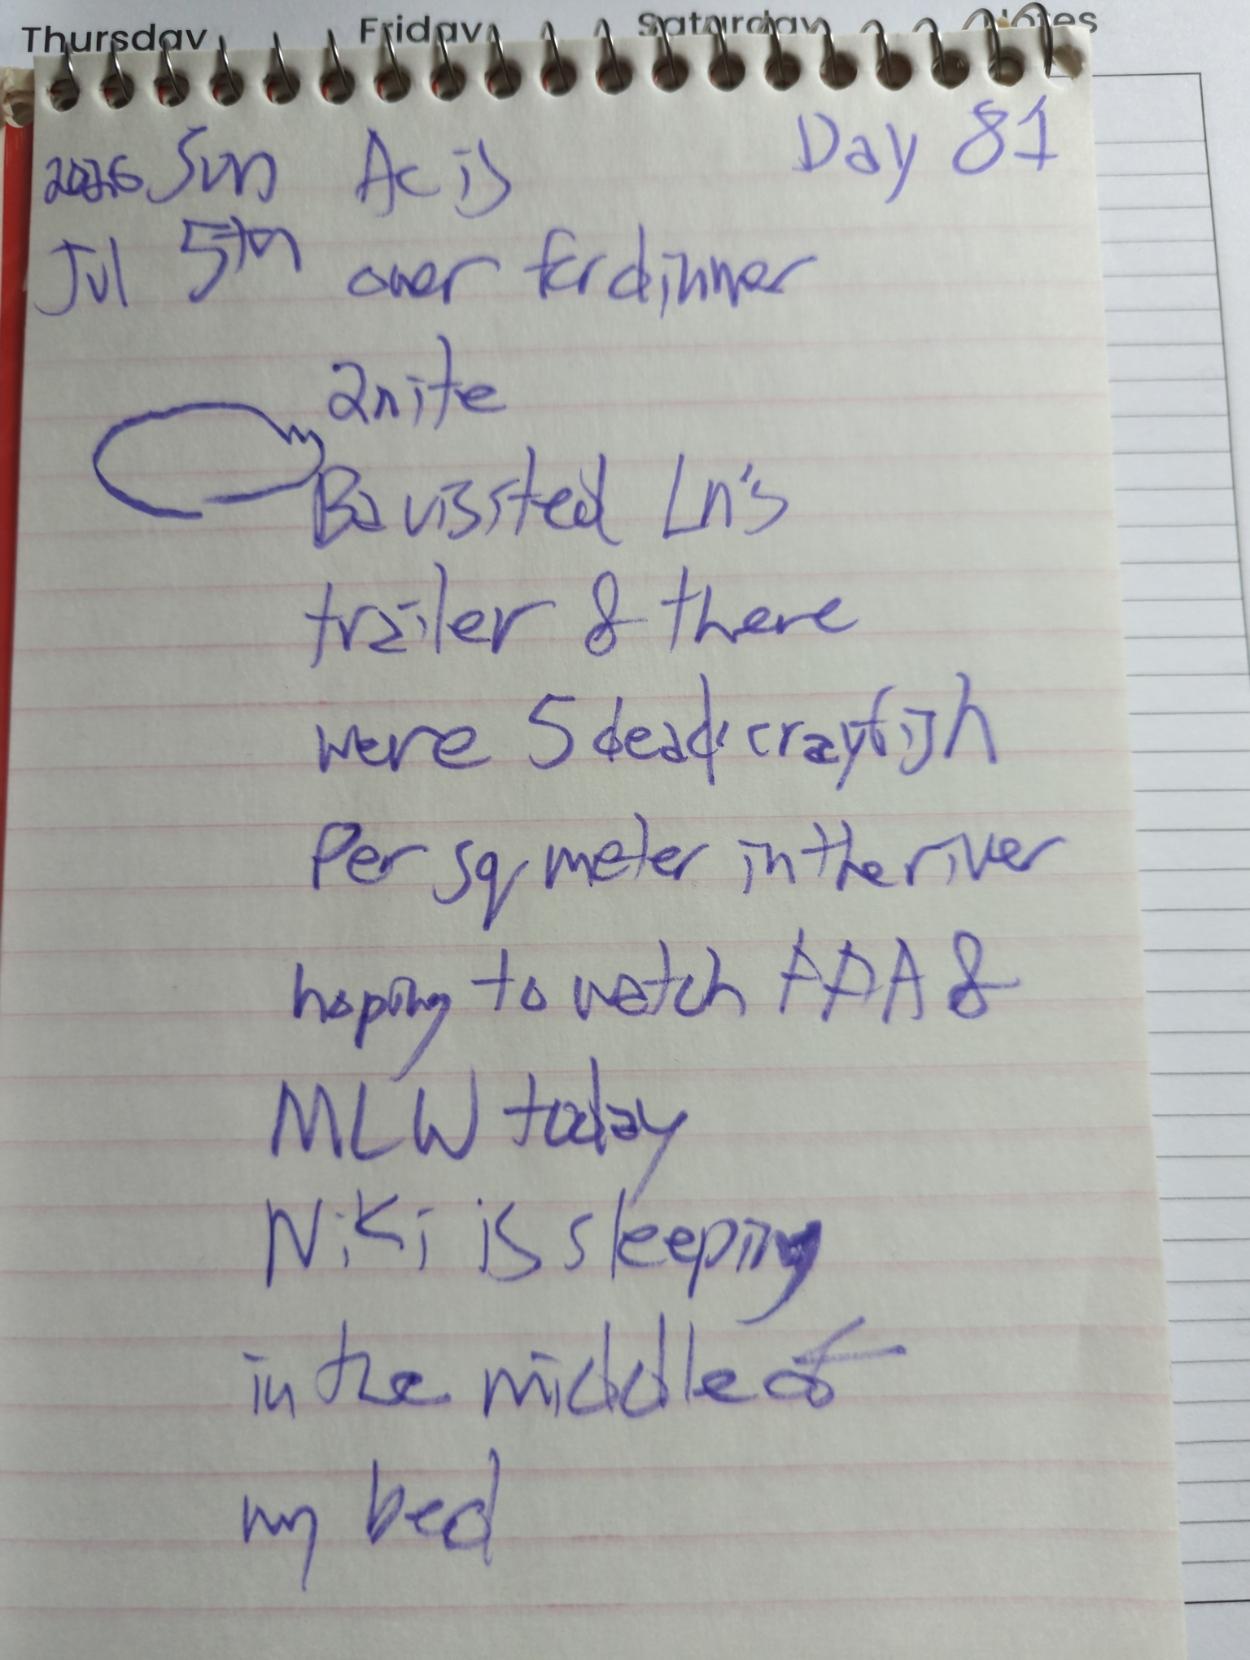 Thursday Friday Saturday Notes
2026 Sun Ac is Day 81
Jul 5th over for dinner
2nite
Ba visited Ln's
trailer & there
were 5 dead crayfish
Per sq meter in the river
hoping to watch ADA &
MLW today
Niki is sleeping
in the middle of
my bed